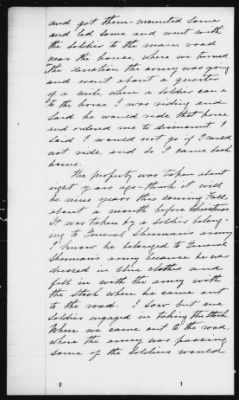 and got them - mounted some
and led some and went with
the soldier to the main road
near the house, where we turned
the direction the army was going
and went about a quarter
of a mile, when a soldier came
to the horse I was riding and
said he would ride that horse
and ordered me to dismount I
said I would not go if I could
not ride, and so I came back
home.
The property was taken about
eight years ago - think it will
be nine years this coming Fall,
about a month before Christmas
It was taken by a soldier belong-
ing to General Sherman's army
I know he belonged to General
Sherman's army because he was
dressed in blue clothes and
fell in with the army with
the stock when he came out
to the road. I saw but one
soldier engaged in taking the stock
When we came out to the road
where the army was passing
some of the soldiers would